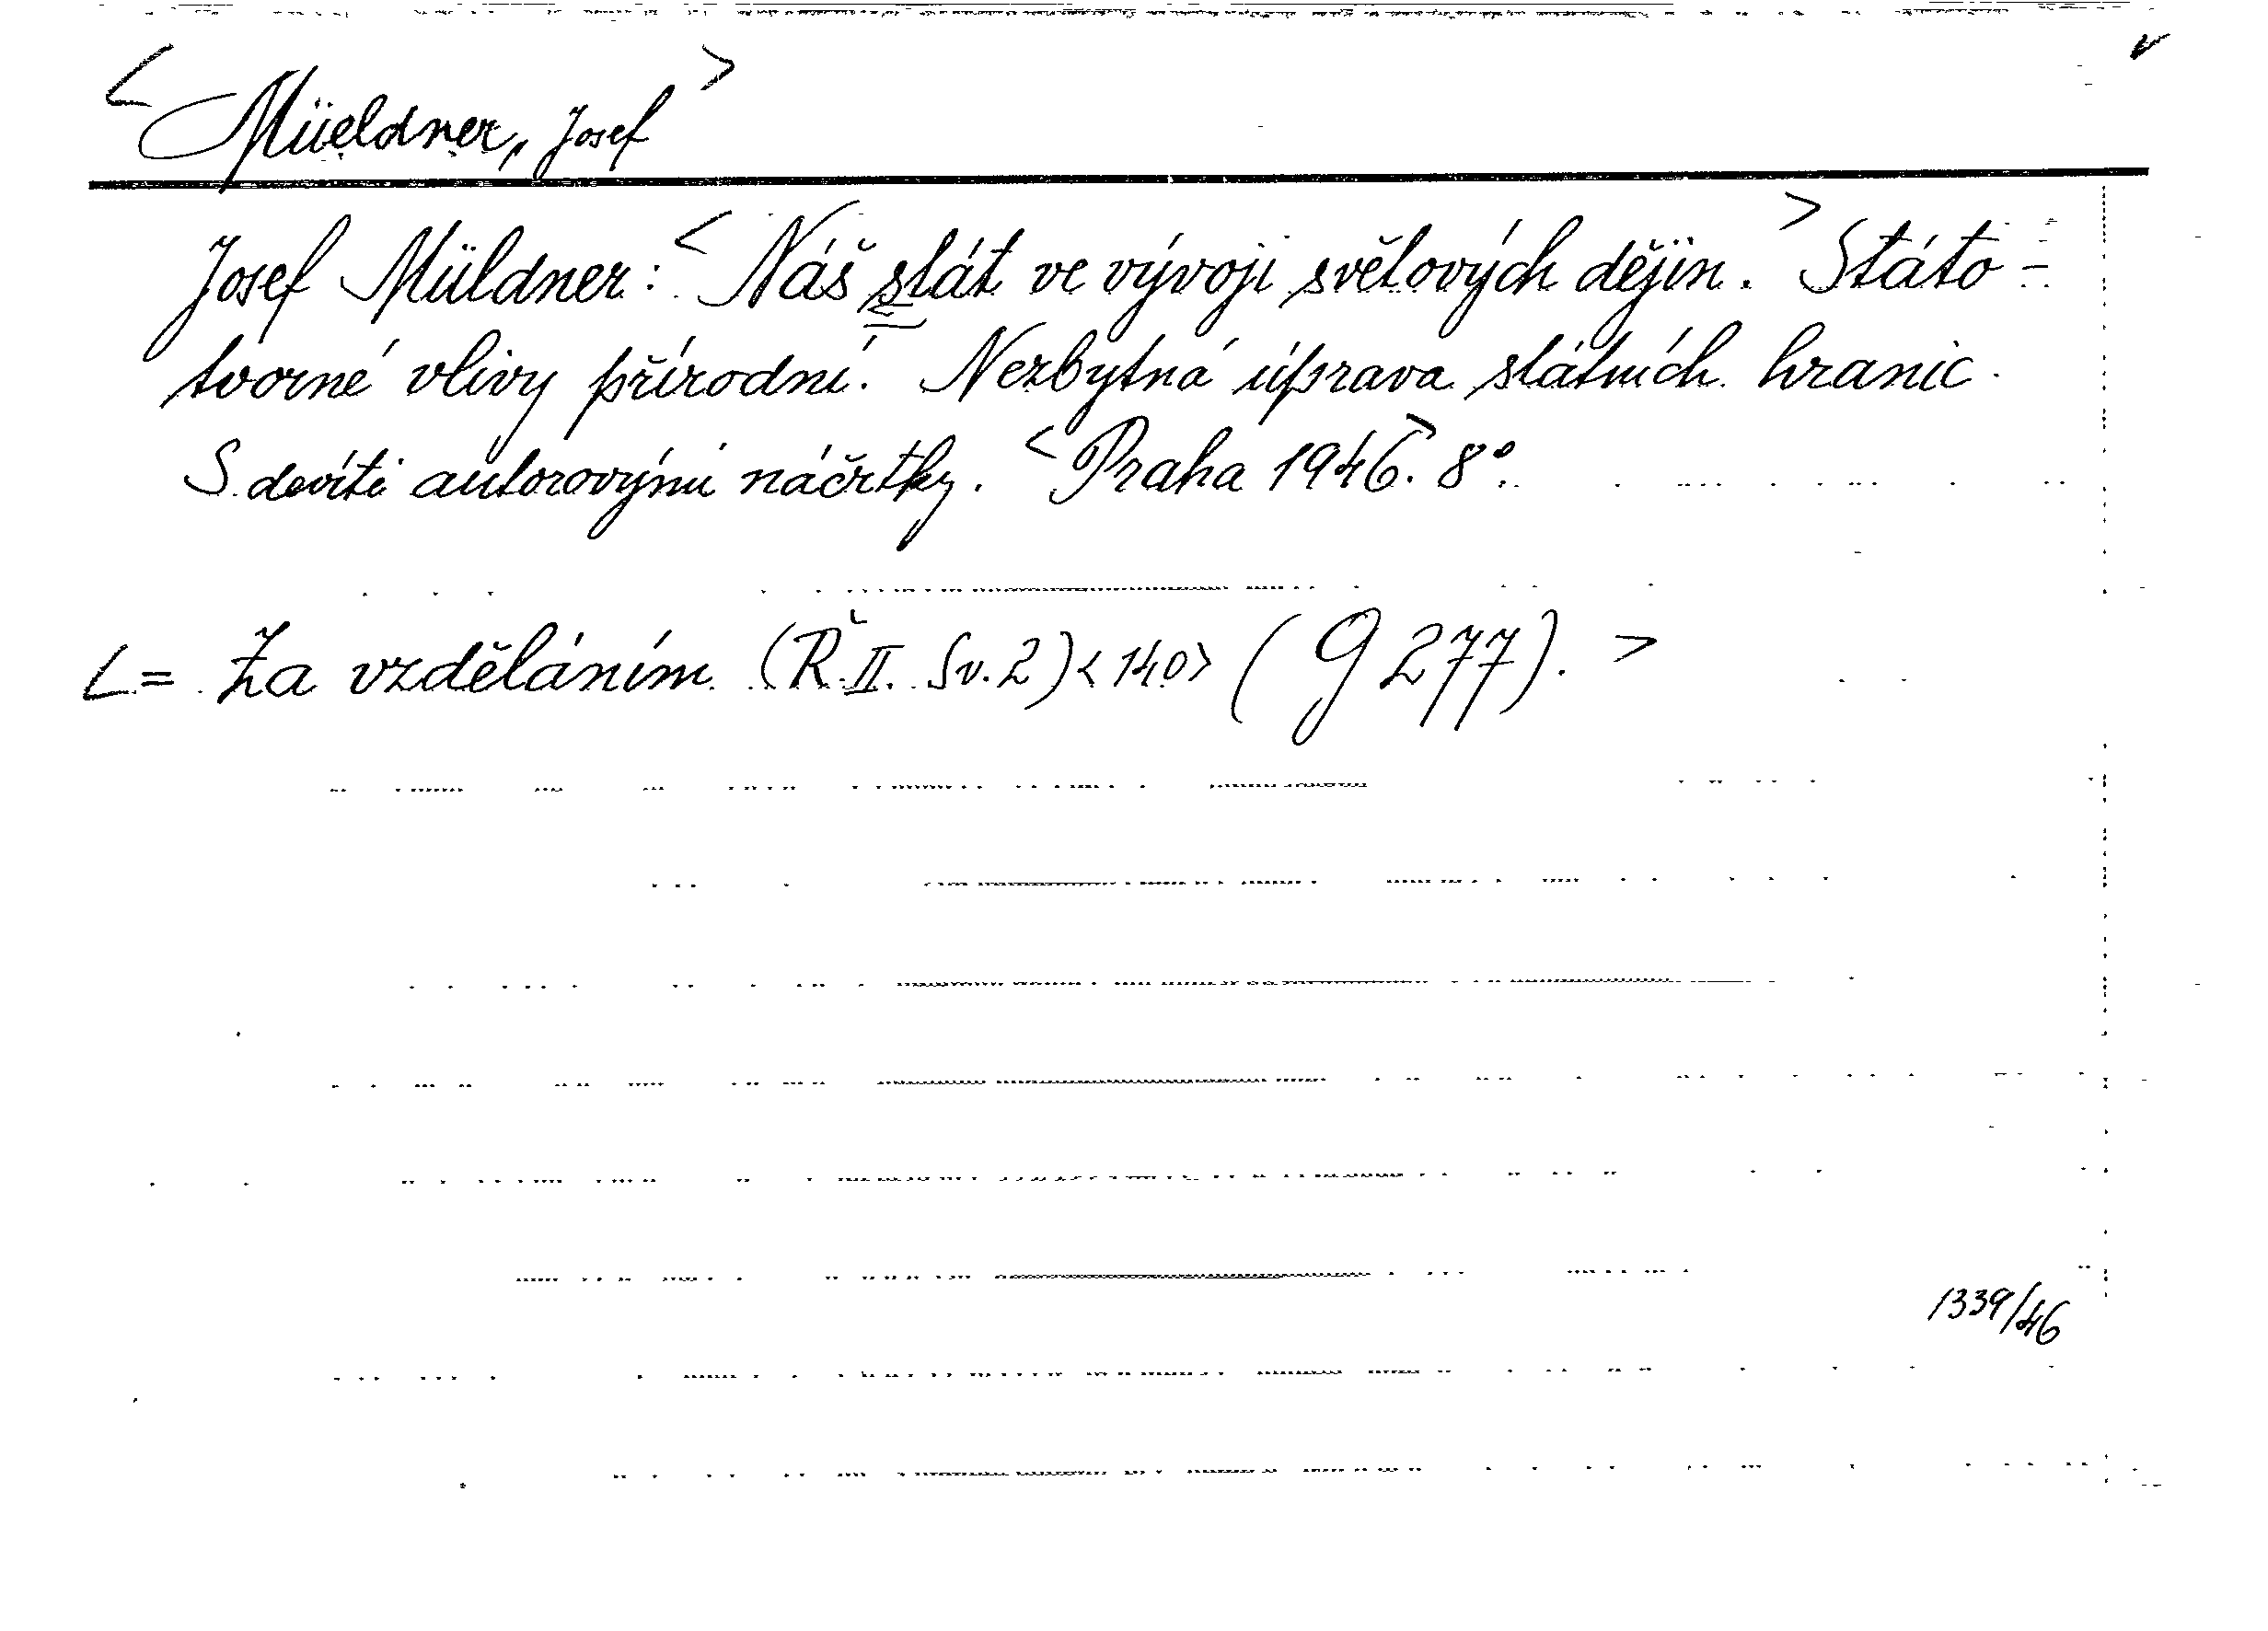 <Müeldner, Josef>
Josef Müldner: <Náš stát ve vývoji světových dějin.> Státo-
tvorné vlivy přírodní. Nezbytná úprava státních hranic.
S devíti autorovými náčrtky. <Praha 1946>. 8°.
<= Za vzděláním (Ř. II. Sv. 2) <140> (G 277). >
1339/46